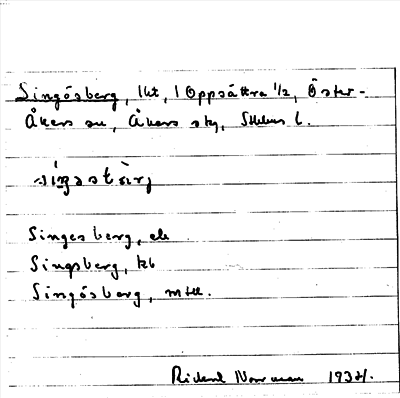 Singösberg, lht, i Oppsättra 1/2, Öster-
Åkers sn, Åkers skg, Sthlms l.
Singesberg, ek
Singsberg, kb
Singösberg, mtl.
Rickard Norrman 1932.